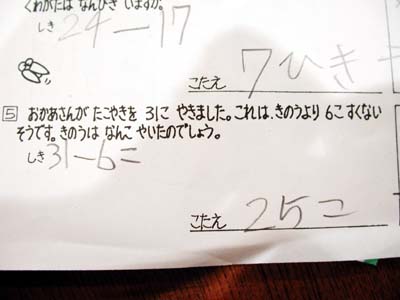 くわがたは なんびき いますか。
しき 24-17
こたえ 7ひき
5 おかあさんが たこやきを 31こ やきました。これは、きのうより 6こ すくない
そうです。きのうは なんこ やいたのでしょう。
しき 31-6=
こたえ 25こ